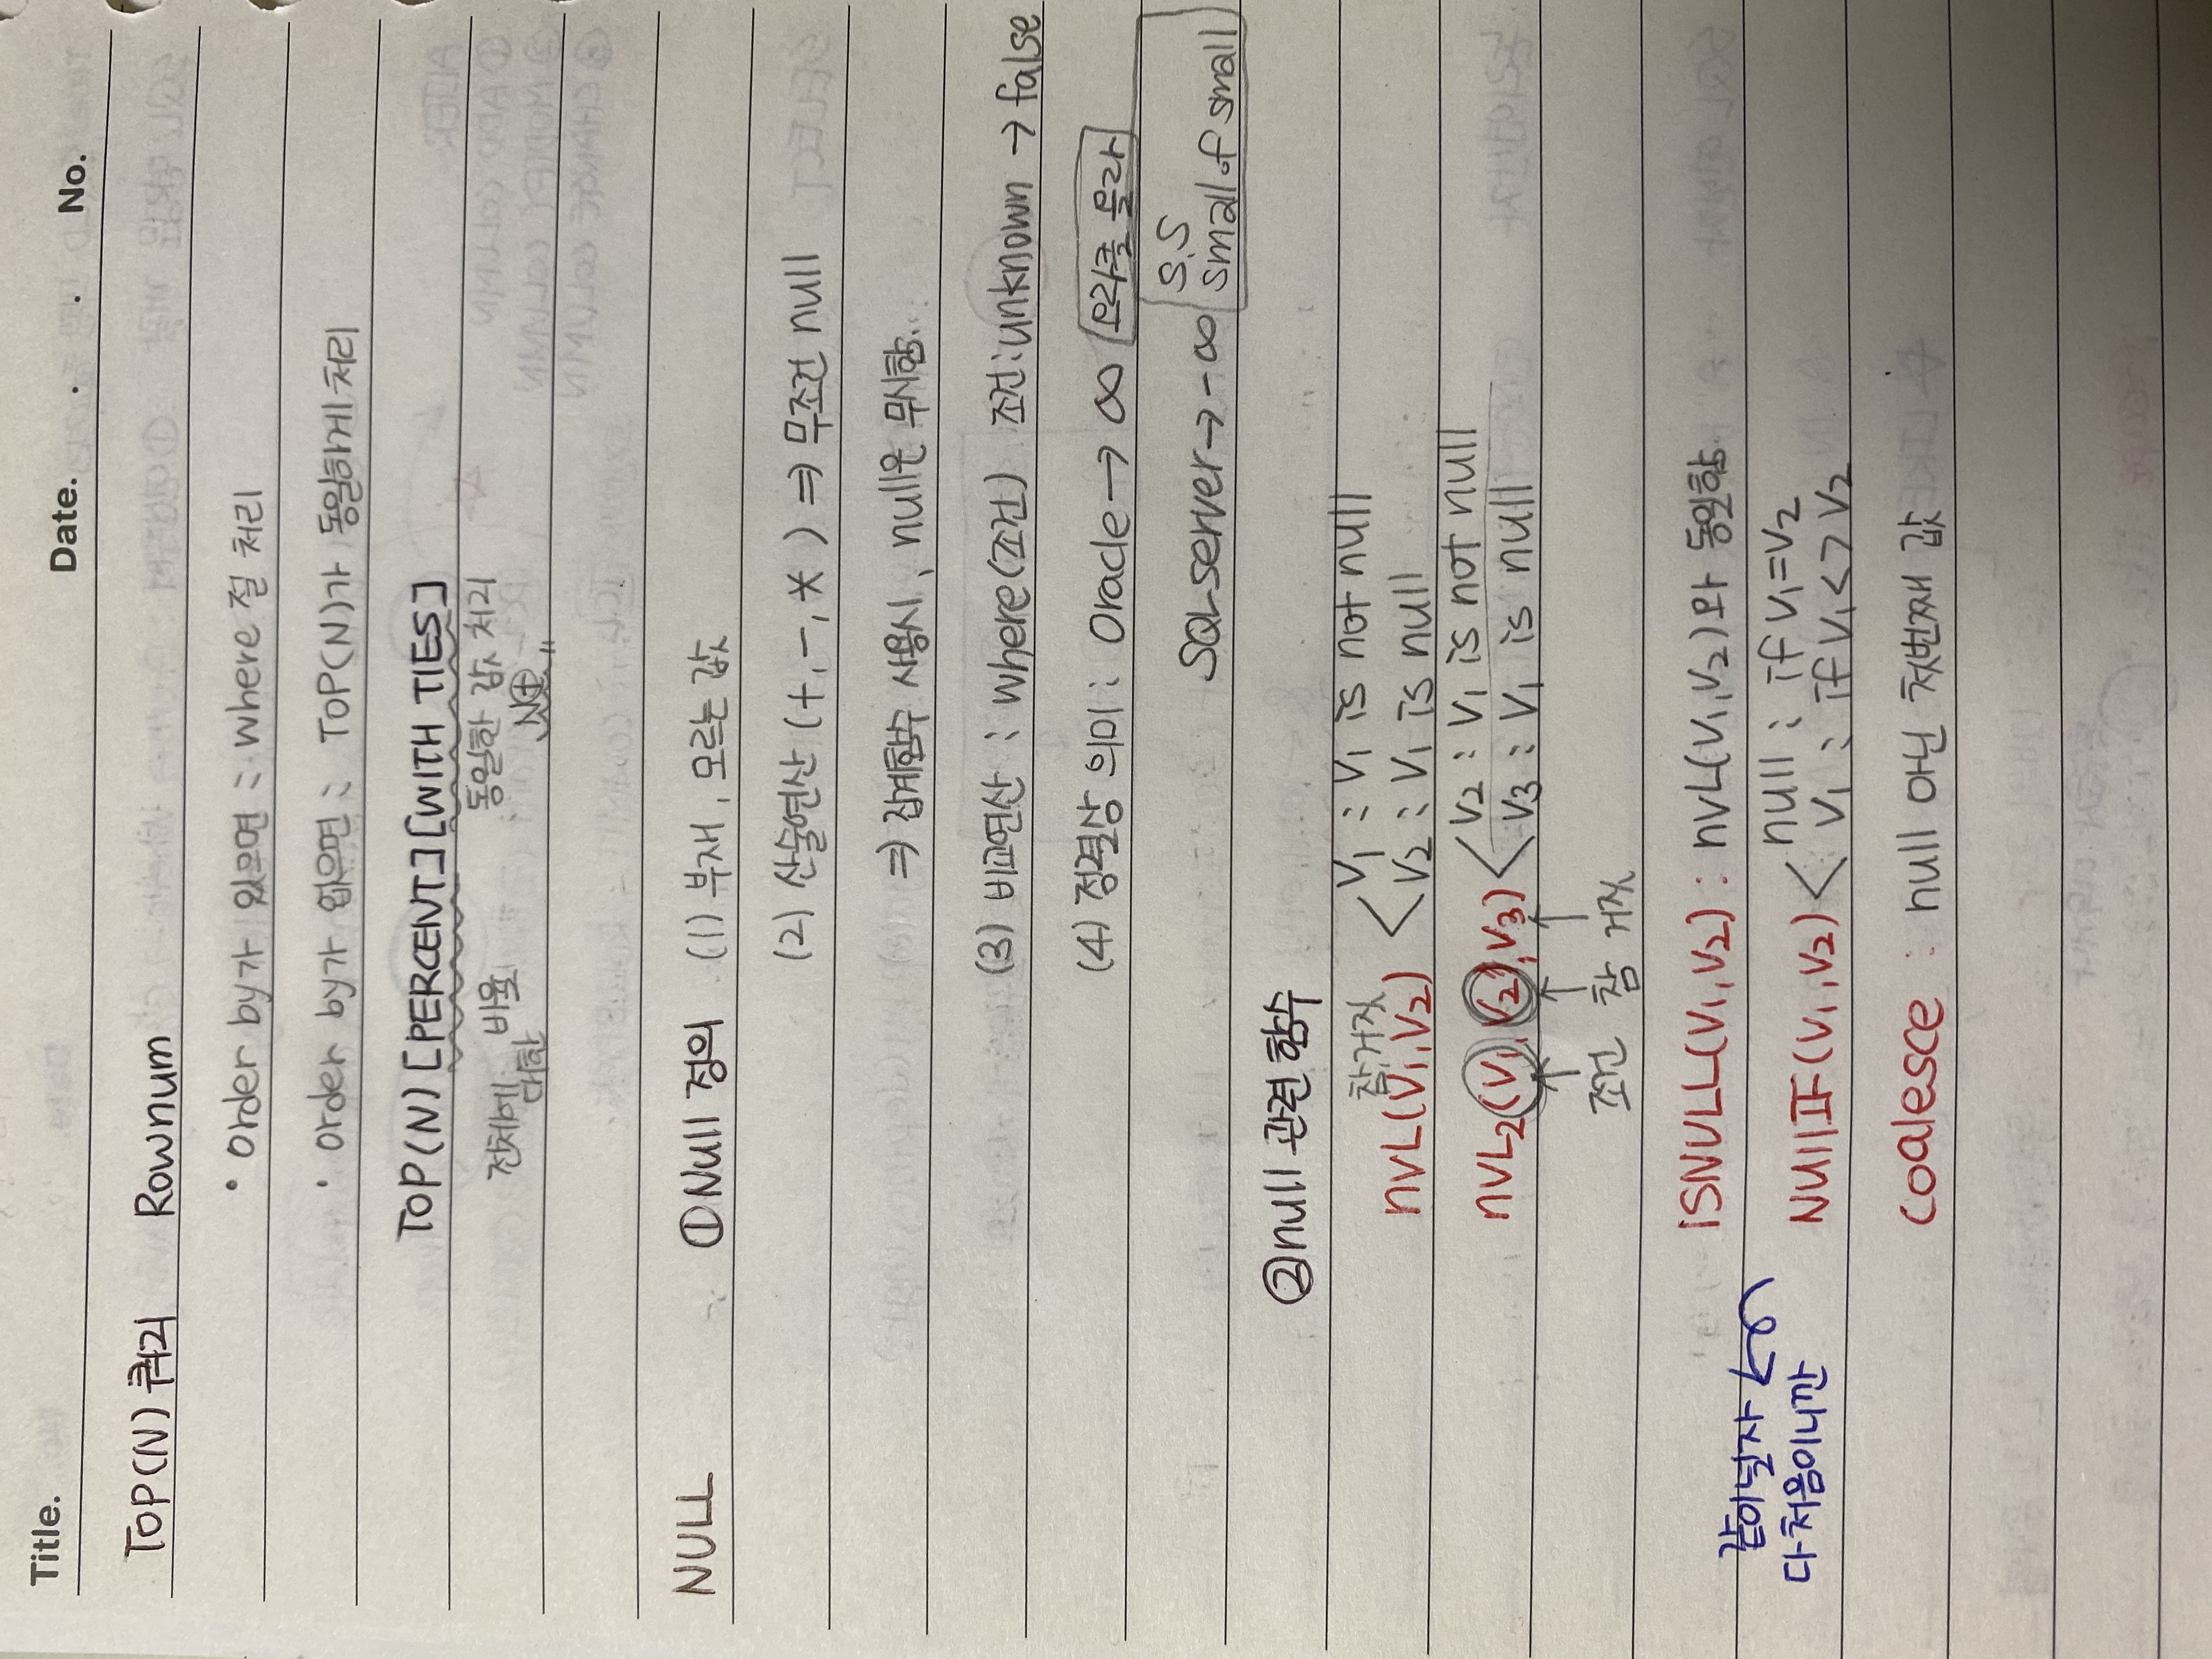 Title. Date. . . No.
TOP(N) 쿼리 Rownum
• order by가 있으면 : where 절 처리
• order by가 없으면 : TOP(N)가 동일하게 처리
TOP(N) [PERCENT] [WITH TIES]
전체에 대한 비율 동일한 값 처리
N+
NULL ① Null 정의 (1) 부재, 모르는 값
(2) 산술연산 (+, -, * ) ⇒ 무조건 null
⇒ 집계함수 사용시, null은 무시함.
(3) 비교연산 : where(조건) 조건:unknown → false
(4) 정렬상 의미 : Oracle → ∞ 오라클 몰라
SQL server → -∞ S.S
small of small
② null 관련 함수
참, 거짓
nvL(V1, V2) < V1 : V1 is not null
V2 : V1 is null
nVL2(V1, V2, V3) < V2 : V1 is not null
V3 : V1 is null
↑ ↑ ↑
조건 참 거짓
ISNULL(V1, V2) : nvL(V1, V2)와 동일함.
같이널자 ←
다 처음이니깐
NullIF(V1, V2) < null : if V1=V2
V1 : if V1<>V2
coalesce : null 아닌 첫번째 값